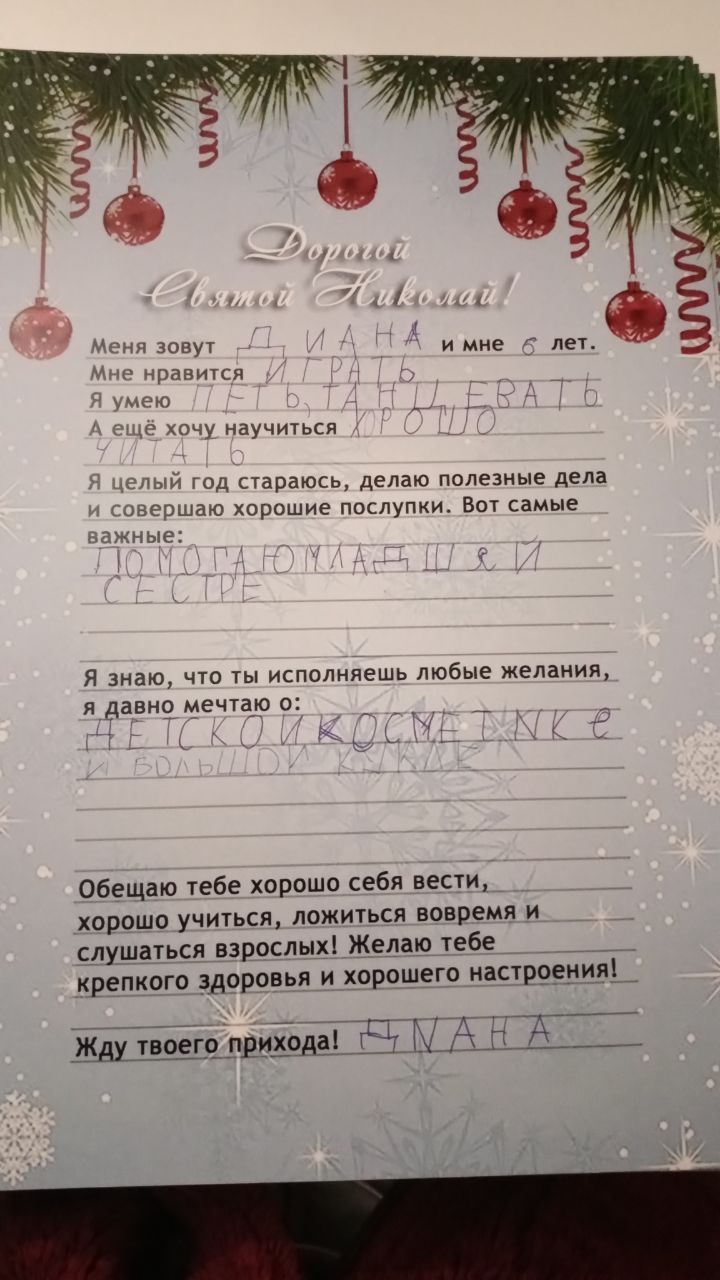 Дорогой
Святой Николай!
Меня зовут ДИАНА и мне 6 лет.
Мне нравится ИГРАТЬ
Я умею ПЕТЬ, ТАНЦЕВАТЬ
А ещё хочу научиться ХОРОШО
ЧИТАТЬ
Я целый год стараюсь, делаю полезные дела
и совершаю хорошие послупки. Вот самые
важные:
ПОМОГАЮ МЛАДШЯЙ
СЕСТРЕ
Я знаю, что ты исполняешь любые желания,
я давно мечтаю о:
ДЕТСКОЙ КОСМЕТИКЕ
И БОЛЬШОЙ КУКЛЕ
Обещаю тебе хорошо себя вести,
хорошо учиться, ложиться вовремя и
слушаться взрослых! Желаю тебе
крепкого здоровья и хорошего настроения!
Жду твоего прихода! ДИАНА